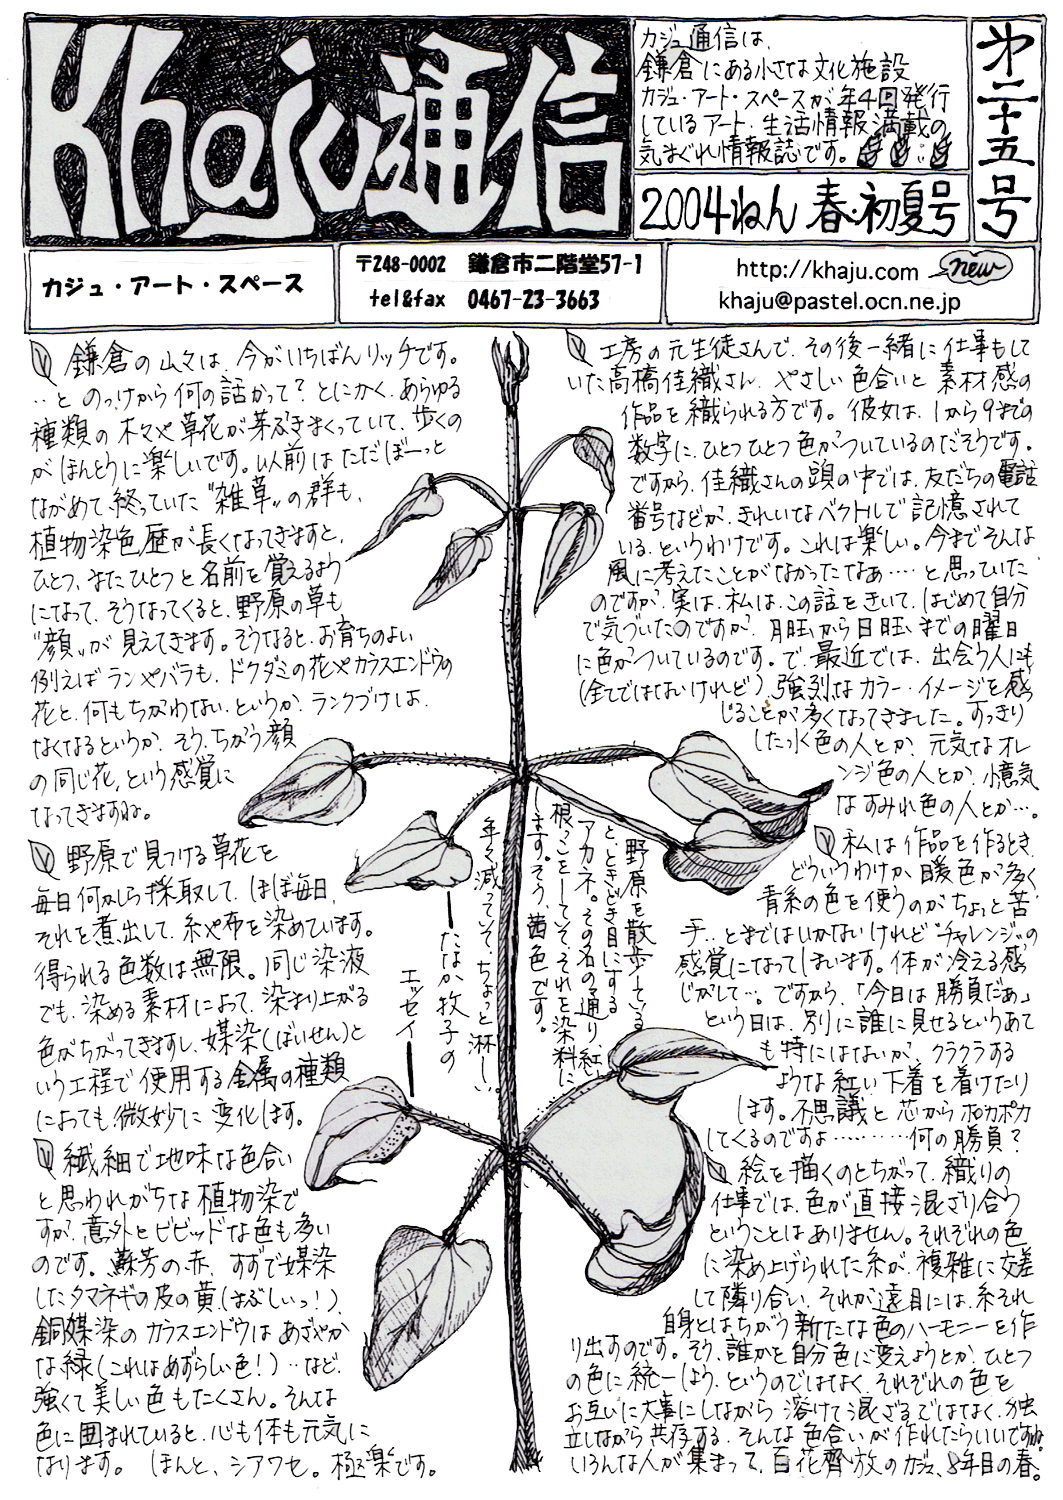 Khaju通信
カジュ通信は、
鎌倉にある小さな文化施設
カジュ・アート・スペースが年4回発行
しているアート・生活情報満載の
気まぐれ情報誌です。
第二十五号
2004ねん 春・初夏号
カジュ・アート・スペース
〒248-0002 鎌倉市二階堂57-1
tel&fax 0467-23-3663
http://khaju.com new
khaju@pastel.ocn.ne.jp
鎌倉の山々は、今がいちばんリッチです。
‥と のっけから何の話かって？とにかく、あらゆる
種類の木々や草花が芽ぶきまくっていて、歩くの
がほんとうに楽しいです。以前はただぼーっと
ながめて終っていた〝雑草〟の群も、
植物染色歴が長くなってきますと、
ひとつ、またひとつと名前を覚えるよう
になって、そうなってくると、野原の草も
〝顔〟が見えてきます。そうなると、お育ちのよい
例えばランやバラも、ドクダミの花やカラスエンドウの
花と、何もちがわない、というか、ランクづけは、
なくなるというか、そう、ちがう顔
の同じ花、という感覚に
なってきますね。
野原で見つける草花を
毎日何かしら採取して、ほぼ毎日、
それを煮出して、糸や布を染めています。
得られる色数は無限。同じ染液
でも、染める素材によって、染まり上がる
色がちがってきますし、媒染(ばいせん)と
いう工程で使用する金属の種類
によっても、微妙に変化します。
繊細で地味な色合い
と思われがちな植物染で
すが、意外とビビッドな色も多い
のです。蘇芳の赤、すずで媒染
したタマネギの皮の黄(まぶしいっ！)、
銅媒染のカラスエンドウはあざやか
な緑(これはめずらしい色！)‥など、
強くて美しい色もたくさん。そんな
色に囲まれていると、心も体も元気に
なります。 ほんと、シアワセ。極楽です。
野原を散歩している
と、ときどき目にする
アカネ。その名の通り、紅い
根っこをしていて、それを染料に
します。そう、茜色です。
年々減っていて、ちょっと淋しい。
たなか牧子の
エッセイ
工房の元生徒さんで、その後一緒に仕事もして
いた高橋佳織さん、やさしい色合いと素材感の
作品を織られる方です。彼女は、1から9までの
数字に、ひとつひとつ色がついているのだそうです。
ですから、佳織さんの頭の中では、友だちの電話
番号などが、きれいなベクトルで記憶されて
いる、というわけです。これは楽しい。今までそんな
風に考えたことがなかったなぁ‥‥と思っていた
のですが、実は、私は、この話をきいて、はじめて自分
で気づいたのですが、月旺から日旺までの曜日
に色がついているのです。で、最近では、出会う人にも
(全てではないけれど)、強烈なカラー・イメージを感
じることが多くなってきました。すっきり
した水色の人とか、元気なオレ
ンジ色の人とか、小意気
なすみれ色の人とか…。
私は作品を作るとき、
どういうわけか、暖色が多く
青系の色を使うのがちょっと苦
手‥とまではいかないけれど〝チャレンジ〟の
感覚になってしまいます。体が冷える感
じがして…。ですから、「今日は勝負だぁ」
という日は、別に誰に見せるというあて
も特にはないが、クラクラする
ような紅い下着を着けたり
します。不思議と芯からポカポカ
してくるのですよ………何の勝負？
絵を描くのとちがって、織りの
仕事では、色が直接混ざり合う
ということはありません。それぞれの色
に染め上げられた糸が、複雑に交差
して隣り合い、それが遠目には、糸それ
自身とはちがう新たな色のハーモニーを作
り出すのです。そう、誰かを自分色に変えようとか、ひとつ
の色に統一しよう、というのではなく、それぞれの色を
お互いに大事にしながら溶けて混ざるではなく、独
立しながら共存する、そんな色合いが作れたらいいですね。
いろんな人が集まって、百花齊放のカジュ、8年目の春。